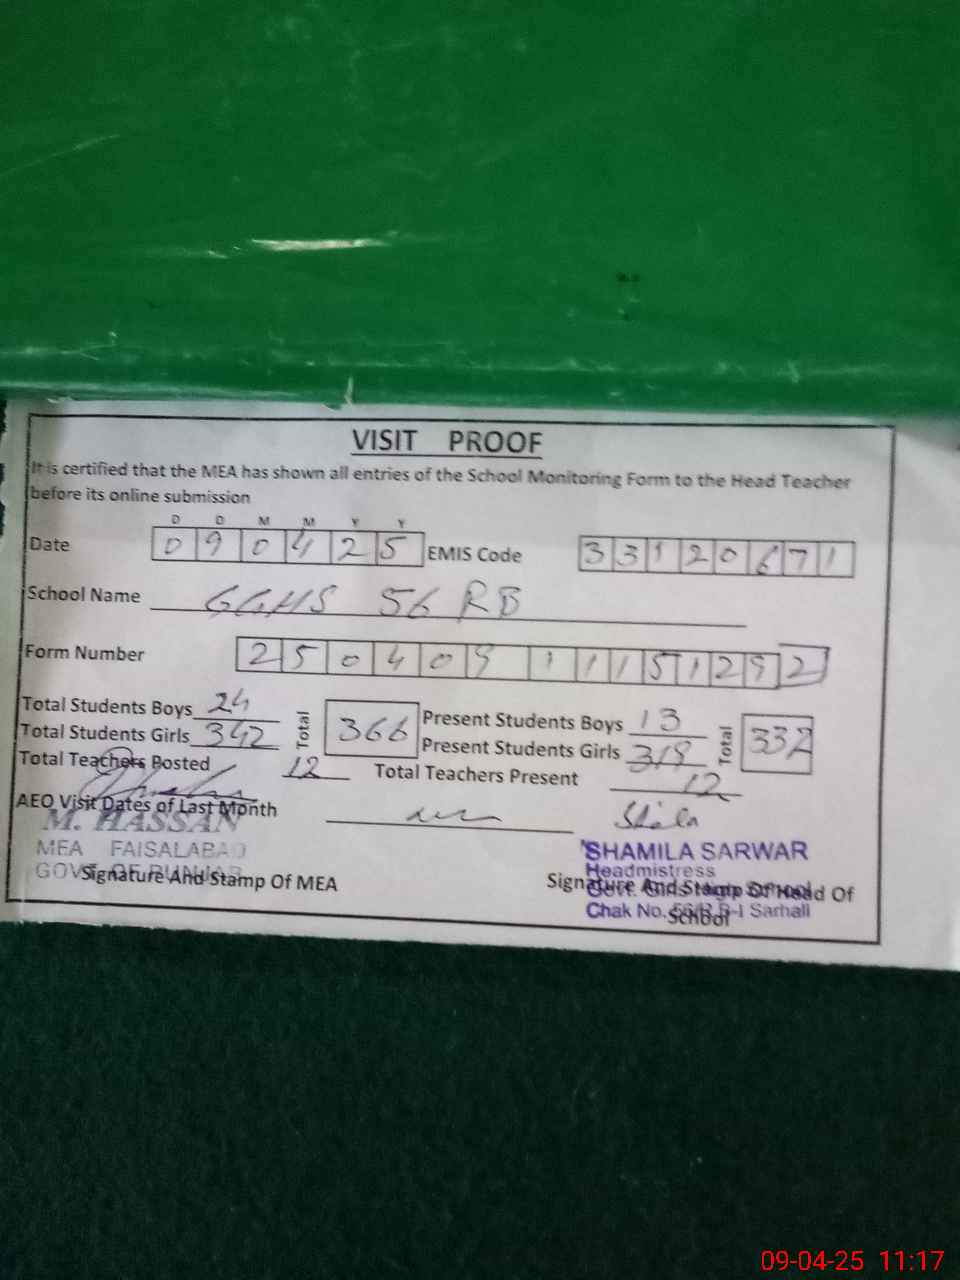 VISIT PROOF
It is certified that the MEA has shown all entries of the School Monitoring Form to the Head Teacher
before its online submission
D D M M Y Y
Date 0 9 0 4 2 5 EMIS Code 3 3 1 2 0 6 7 1
School Name GGHS 56 RB
Form Number 2 5 0 4 0 9 1 1 1 5 1 2 9 2
Total Students Boys 24 Total 366 Present Students Boys 13 Total 332
Total Students Girls 342 Present Students Girls 319
Total Teachers Posted 12 Total Teachers Present 12
AEO Visit Dates of Last Month
M. HASSAN
MEA FAISALABAD
GOVT OF PUNJAB
Signature And Stamp Of MEA
SHAMILA SARWAR
Headmistress
Signature And Stamp Of Head Of
School
Chak No. R.B-I Sarhall
09-04-25 11:17